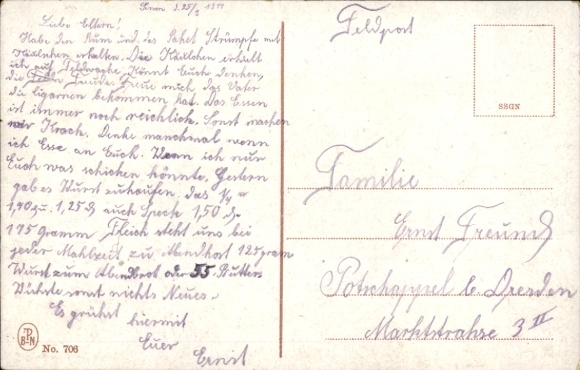 Liebe Eltern!
Habe den Rum und das Paket Strümpfe mit
erhalten. Die erhielt
ich auf Feldwache. Könnt Euch denken,
die Freude. Freue mich das Vater
die Zigarren bekommen hat. Das Essen
ist immer noch reichlich. Sonst machen
wir Krach. Denke manchmal wenn
ich Esse an Euch. Wenn ich nur
Euch was schicken könnte. Gestern
gab es Wurst zukaufen. das 1/4
1,90 1,25 auch Speck 1,50
175 gramm Fleich steht uns bei
jeder Mahlzeit zu 125 gram
Wurst zum Abendbrot oder 55. Butter.
sonst nichts Neues.
Es grüßt
hiermit
Euer
Ernst
Feldpost
SSGN
Familie
Ernst Freund
Potschappel b. Dresden
Marktstrahse 3 II
BPN
No. 706